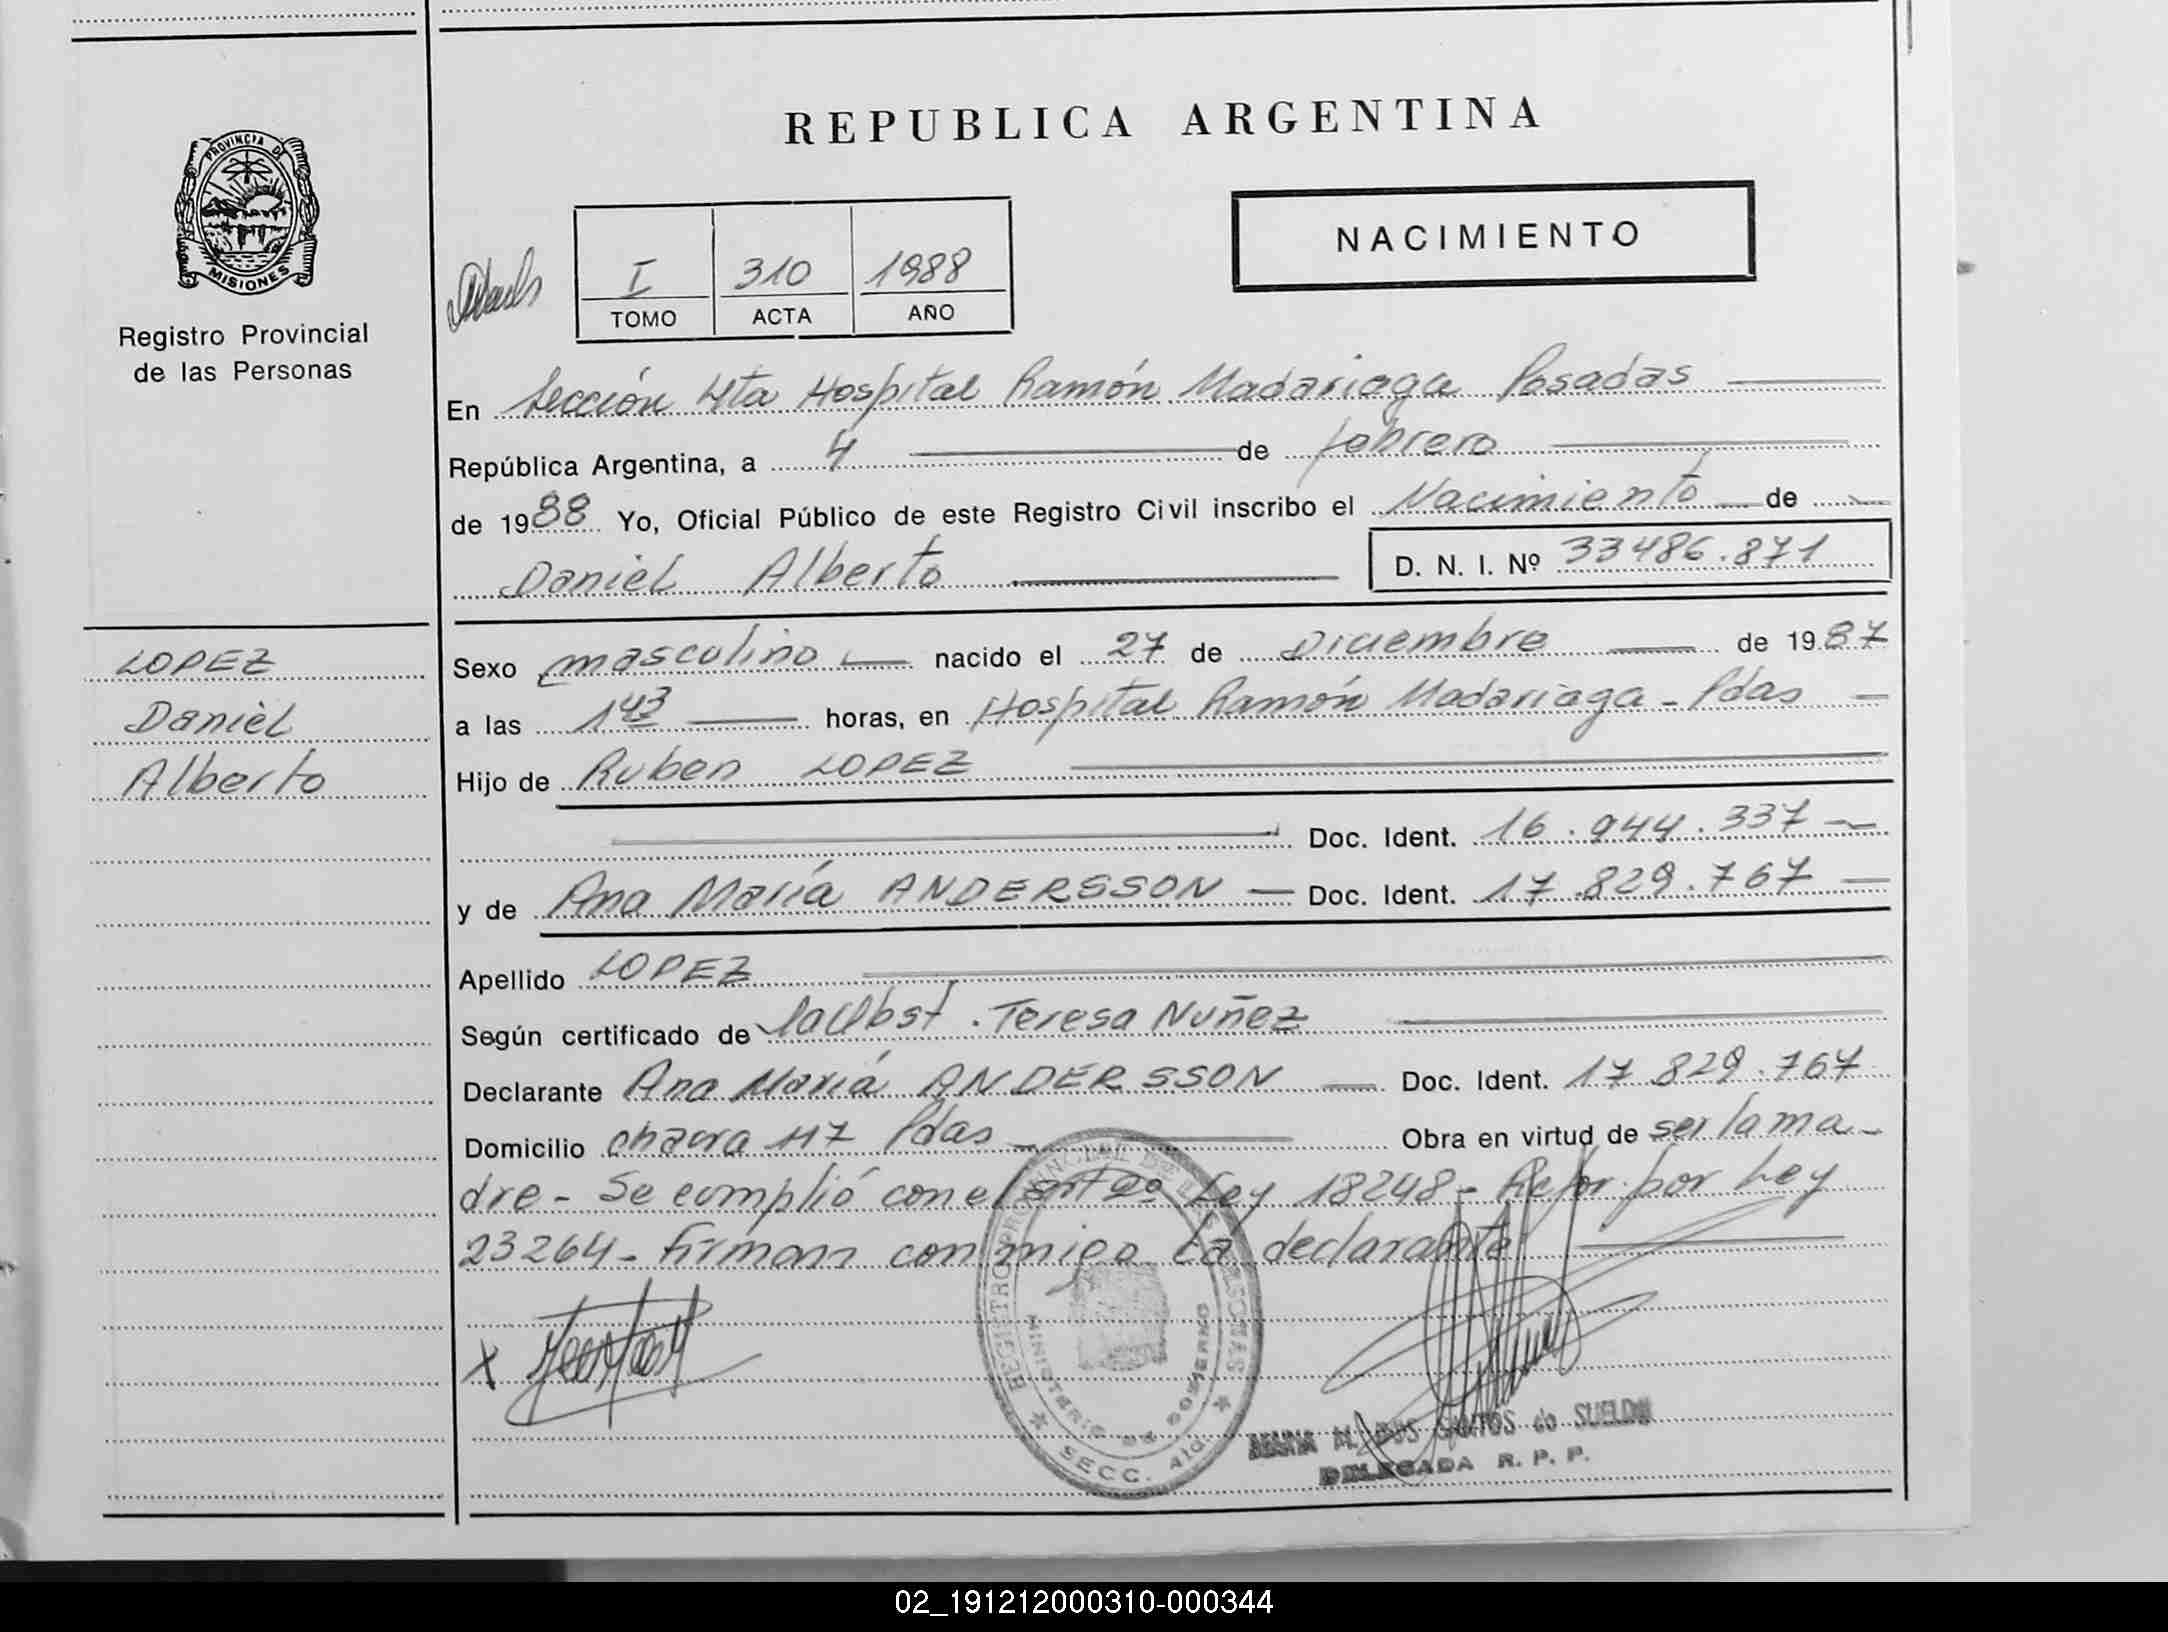 REPUBLICA ARGENTINA
PROVINCIA DE
MISIONES
Registro Provincial
de las Personas
NACIMIENTO
I 310 1988
TOMO ACTA AÑO
En Sección 4ta Hospital Ramón Madariaga Posadas
República Argentina, a 4 de febrero
de 1988 Yo, Oficial Público de este Registro Civil inscribo el Nacimiento de
Daniel Alberto D. N. I. Nº 33486.871
LOPEZ
Daniel
Alberto
Sexo masculino nacido el 27 de Diciembre de 1987
a las 1 43 horas, en Hospital Ramón Madariaga - Pdas
Hijo de Ruben LOPEZ
Doc. Ident. 16.944.337
y de Ana María ANDERSSON Doc. Ident. 17.829.767
Apellido LOPEZ
Según certificado de Teresa Nuñez
Declarante Ana María ANDERSSON Doc. Ident. 17.829.767
Domicilio chacra 117 Pdas Obra en virtud de ser la ma-
dre - Se cumplió con el art 2º Ley 18248 - Refor. por Ley
23264 - Firman conmigo La declarante
REGISTRO PROVINCIAL DE LAS PERSONAS
MINISTERIO DE GOBIERNO
SECC. 4ta
X
DOS SANTOS de SUELDO
DELEGADA R. P. P.
02_191212000310-000344